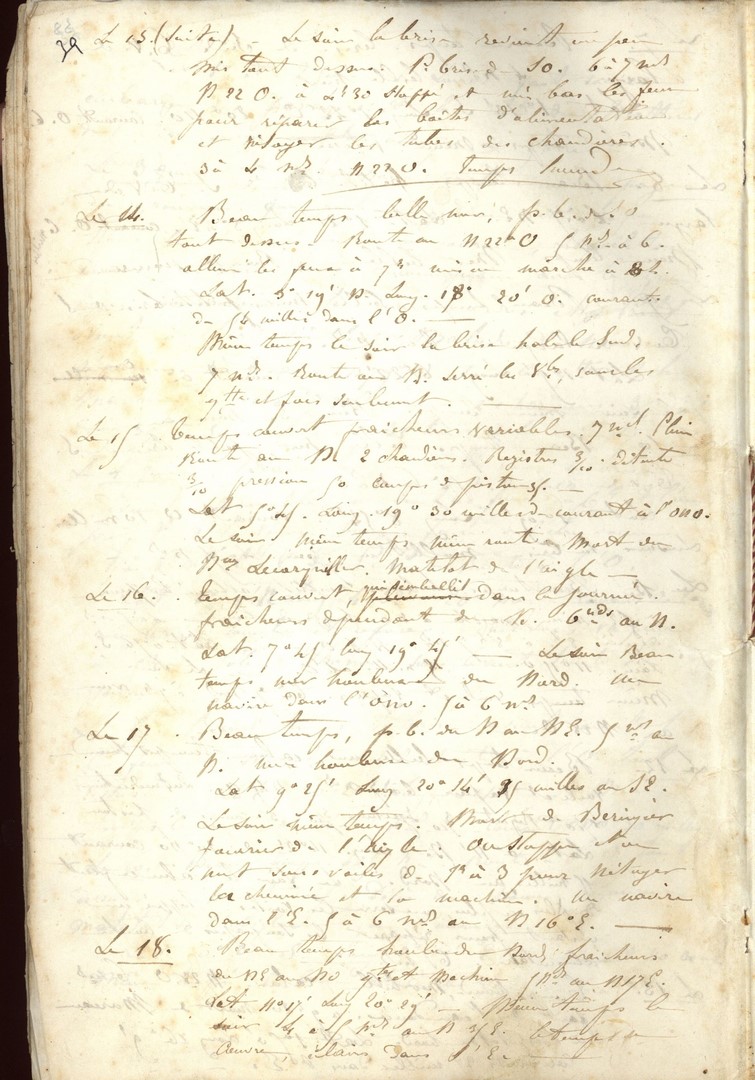 39
Le 13. (suite) - Le soir la brise revient un peu
mis tout dessus P. brise de SO. 6 à 7 nds
N 22 O. à 4h30 stoppé et mis bas les feux
pour réparer les boîtes d'alimentation
et nétoyer les tubes des chaudières.
3 à 4 nds. N 22 O. temps lourd
Le 14. Beau temps belle mer, p. b. de O
tout dessus Route au N 22° O 5 nds à 6.
allumé les feux à 7h mis en marche à 8h.
Lat. 5° 19' N. Long. 18° 20' O. courant
de 54 milles dans l'O.
Même temps le soir la brise hale le Sud,
7 nds. Route au N. serré les
et focs seulement.
Le 15 temps couvert fraîcheurs variables. 7 nds. Plein
Route au N. 2 chaudières. Registres 3/10. détente
3/10 pression 50 coups de pistons
Lat 5° 45. Long. 19° 30 milles de courant à l'ONO.
Le soir même temps même route Mort de
Matelot de l'aigle
Le 16. temps couvert, qui s'embellit dans la journée.
fraîcheurs dépendant du N. 6 nds au N.
Lat. 7° 45 long 19° 45' — Le soir Beau
temps mer houleuse du Nord. un
navire dans l'ONO. 5 à 6 nds
Le 17. Beau temps, p. b. du N au NE. 5 nds au
N. mer houleuse du Nord.
Lat 9° 25' Long 20° 14' 35 milles au SE.
Le soir même temps. Mort de
fourrier de l'aigle. On stoppe et on
met sous voiles de 1h à 3 pour nétoyer
la cheminée et la machine. un navire
dans l'E. 5 à 6 nds au N 16° E.
Le 18. Beau temps houle du Nord, fraîcheurs
du NE au NO et Machine 5 nds au N 17 E.
Lat 11° 17' Long 20° 29' — Même temps le
soir 4 à 5 nds au N le temps se
couvre, éclairs dans l'E.